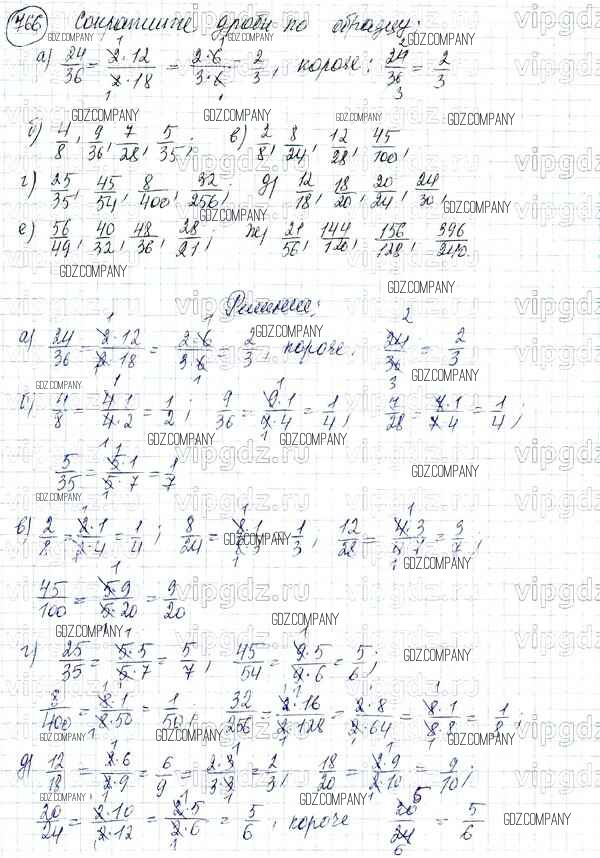 766 Сократите дроби по образцу:
а) 24/36 = 2·12/2·18 = 2·6/3·6 = 2/3, короче: 24/36 = 2/3
GDZ.COMPANY GDZ.COMPANY GDZ.COMPANY
б) 4/8, 9/36, 7/28, 5/35; в) 2/8, 8/24, 12/28, 45/100,
GDZ.COMPANY GDZ.COMPANY GDZ.COMPANY
г) 25/35, 45/54, 8/400, 32/256; д) 12/18, 18/20, 20/24, 24/30,
GDZ.COMPANY
е) 56/49, 40/32, 48/36, 28/21; ж) 21/56, 144/120, 156/128, 396/240.
GDZ.COMPANY GDZ.COMPANY
Решение:
а) 24/36 = 2·12/2·18 = 2·6/3·6 = 2/3, короче: 24/36 = 2/3
б) 4/8 = 4·1/4·2 = 1/2; 9/36 = 9·1/9·4 = 1/4; 7/28 = 7·1/7·4 = 1/4;
5/35 = 5·1/5·7 = 1/7
в) 2/8 = 2·1/2·4 = 1/4; 8/24 = 8·1/8·3 = 1/3; 12/28 = 4·3/4·7 = 3/7;
45/100 = 5·9/5·20 = 9/20
г) 25/35 = 5·5/5·7 = 5/7; 45/54 = 9·5/9·6 = 5/6;
8/400 = 8·1/8·50 = 1/50; 32/256 = 2·16/2·128 = 2·8/2·64 = 8·1/8·8 = 1/8;
д) 12/18 = 2·6/2·9 = 6/9 = 2·3/3·3 = 2/3; 18/20 = 2·9/2·10 = 9/10;
20/24 = 2·10/2·12 = 2·5/2·6 = 5/6, короче 20/24 = 5/6